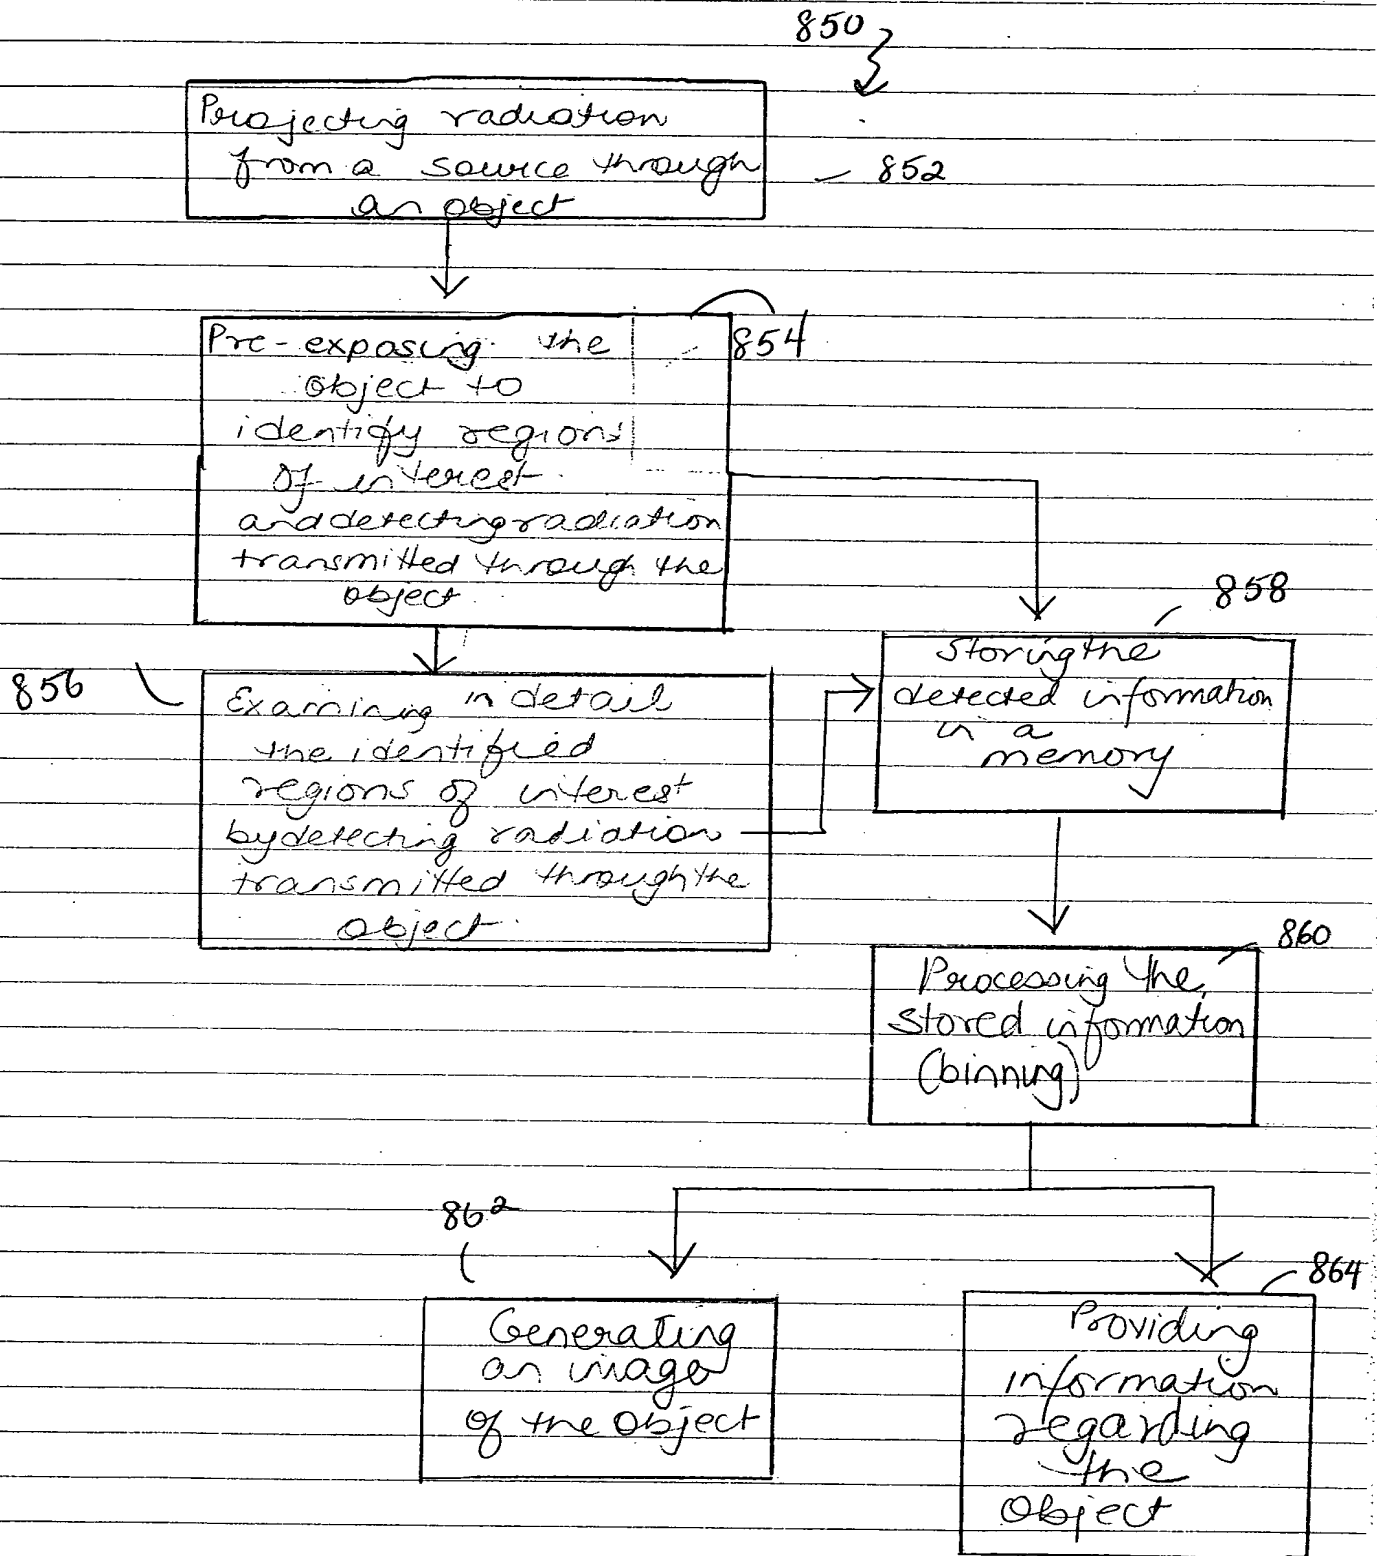 850
Projecting radiation
from a source through
an object
852
Pre-exposing the
object to
identify regions
of interest
and detecting radiation
transmitted through the
object
854
856
Examining in detail
the identified
regions of interest
by detecting radiation
transmitted through the
object.
858
Storing the
detected information
in a
memory
860
Processing the
stored information
(binning)
862
Generating
an image
of the object
864
Providing
information
regarding
the
object